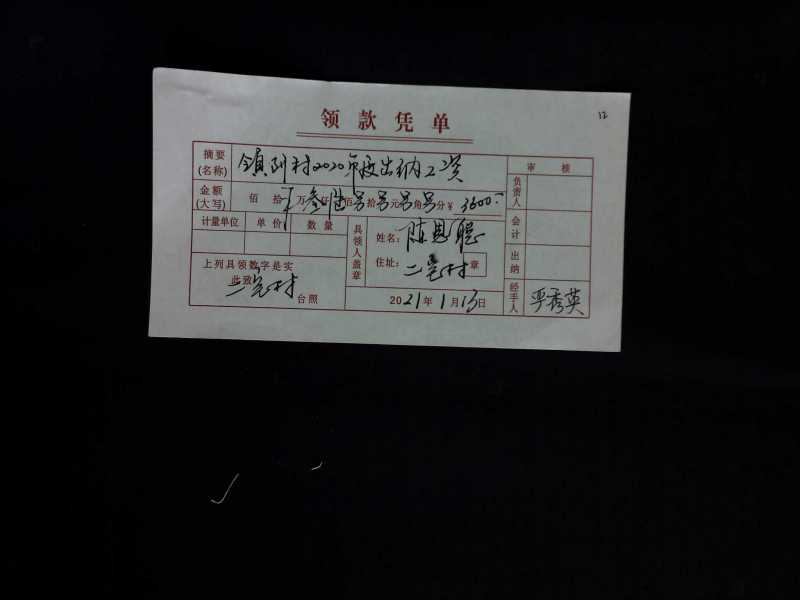 12
领款凭单
摘要(名称) 镇到村2020年度出纳工资
审核
金额(大写) 佰拾万叁仟陆佰另拾另元另角另分 ¥ 3600.-
负责人
计量单位 单价 数量
具领人盖章
姓名: 陈恩聪
会计
住址: 二宅村 章
出纳
上列具领数字是实
此致
二宅村 台照
2021年1月13日
经手人 严秀英